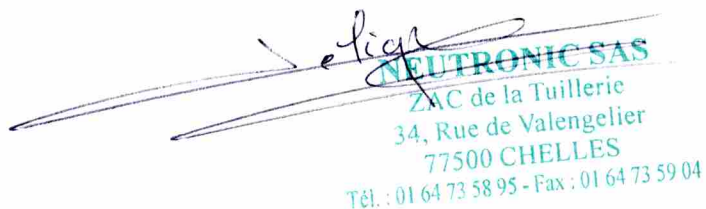 NEUTRONIC SAS
ZAC de la Tuillerie
34, Rue de Valengelier
77500 CHELLES
Tél. : 01 64 73 58 95 - Fax : 01 64 73 59 04